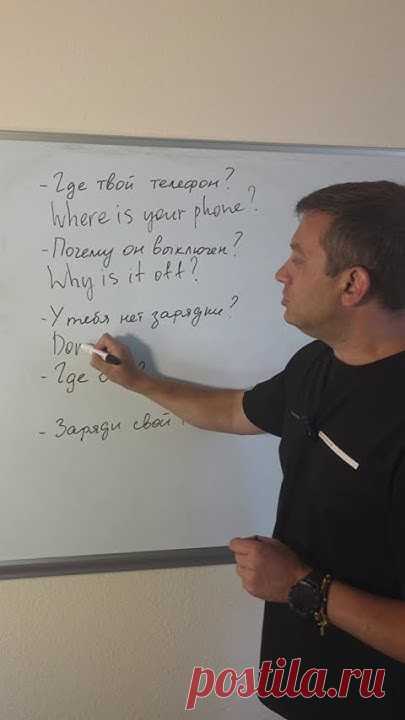 - Где твой телефон?
Where is your phone?
- Почему он выключен?
Why is it off?
- У тебя нет зарядки?
Don
- Где ?
- Заряди свой
postila.ru